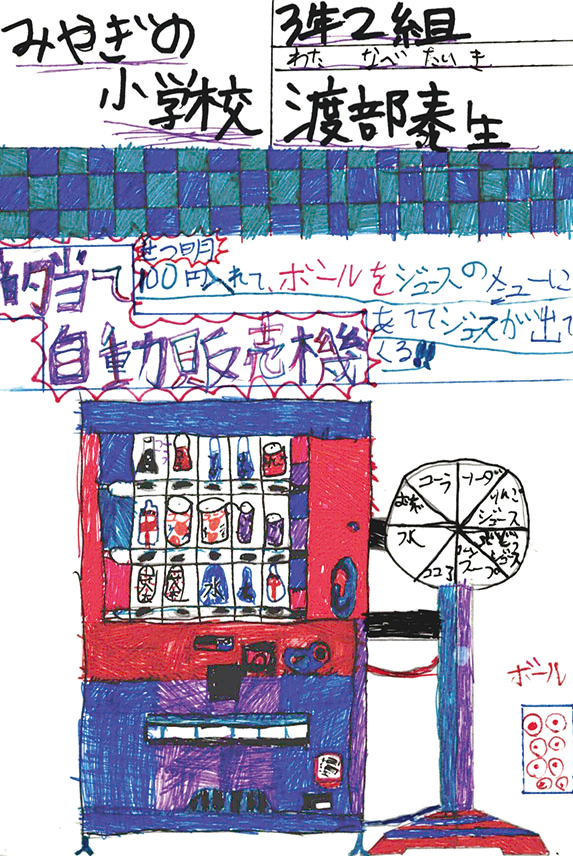 みやぎの
小学校
3年2組
わた なべ たいき
渡部泰生
的当て
自動販売機
せつ明
100円入れて、ボールをジュースのメューに
あててジュースが出て
くる!!
コーラ
ソーダ
りんご
ジュース
ぶどう
ジュース
ココア
水
お茶
りんご
水
ボール